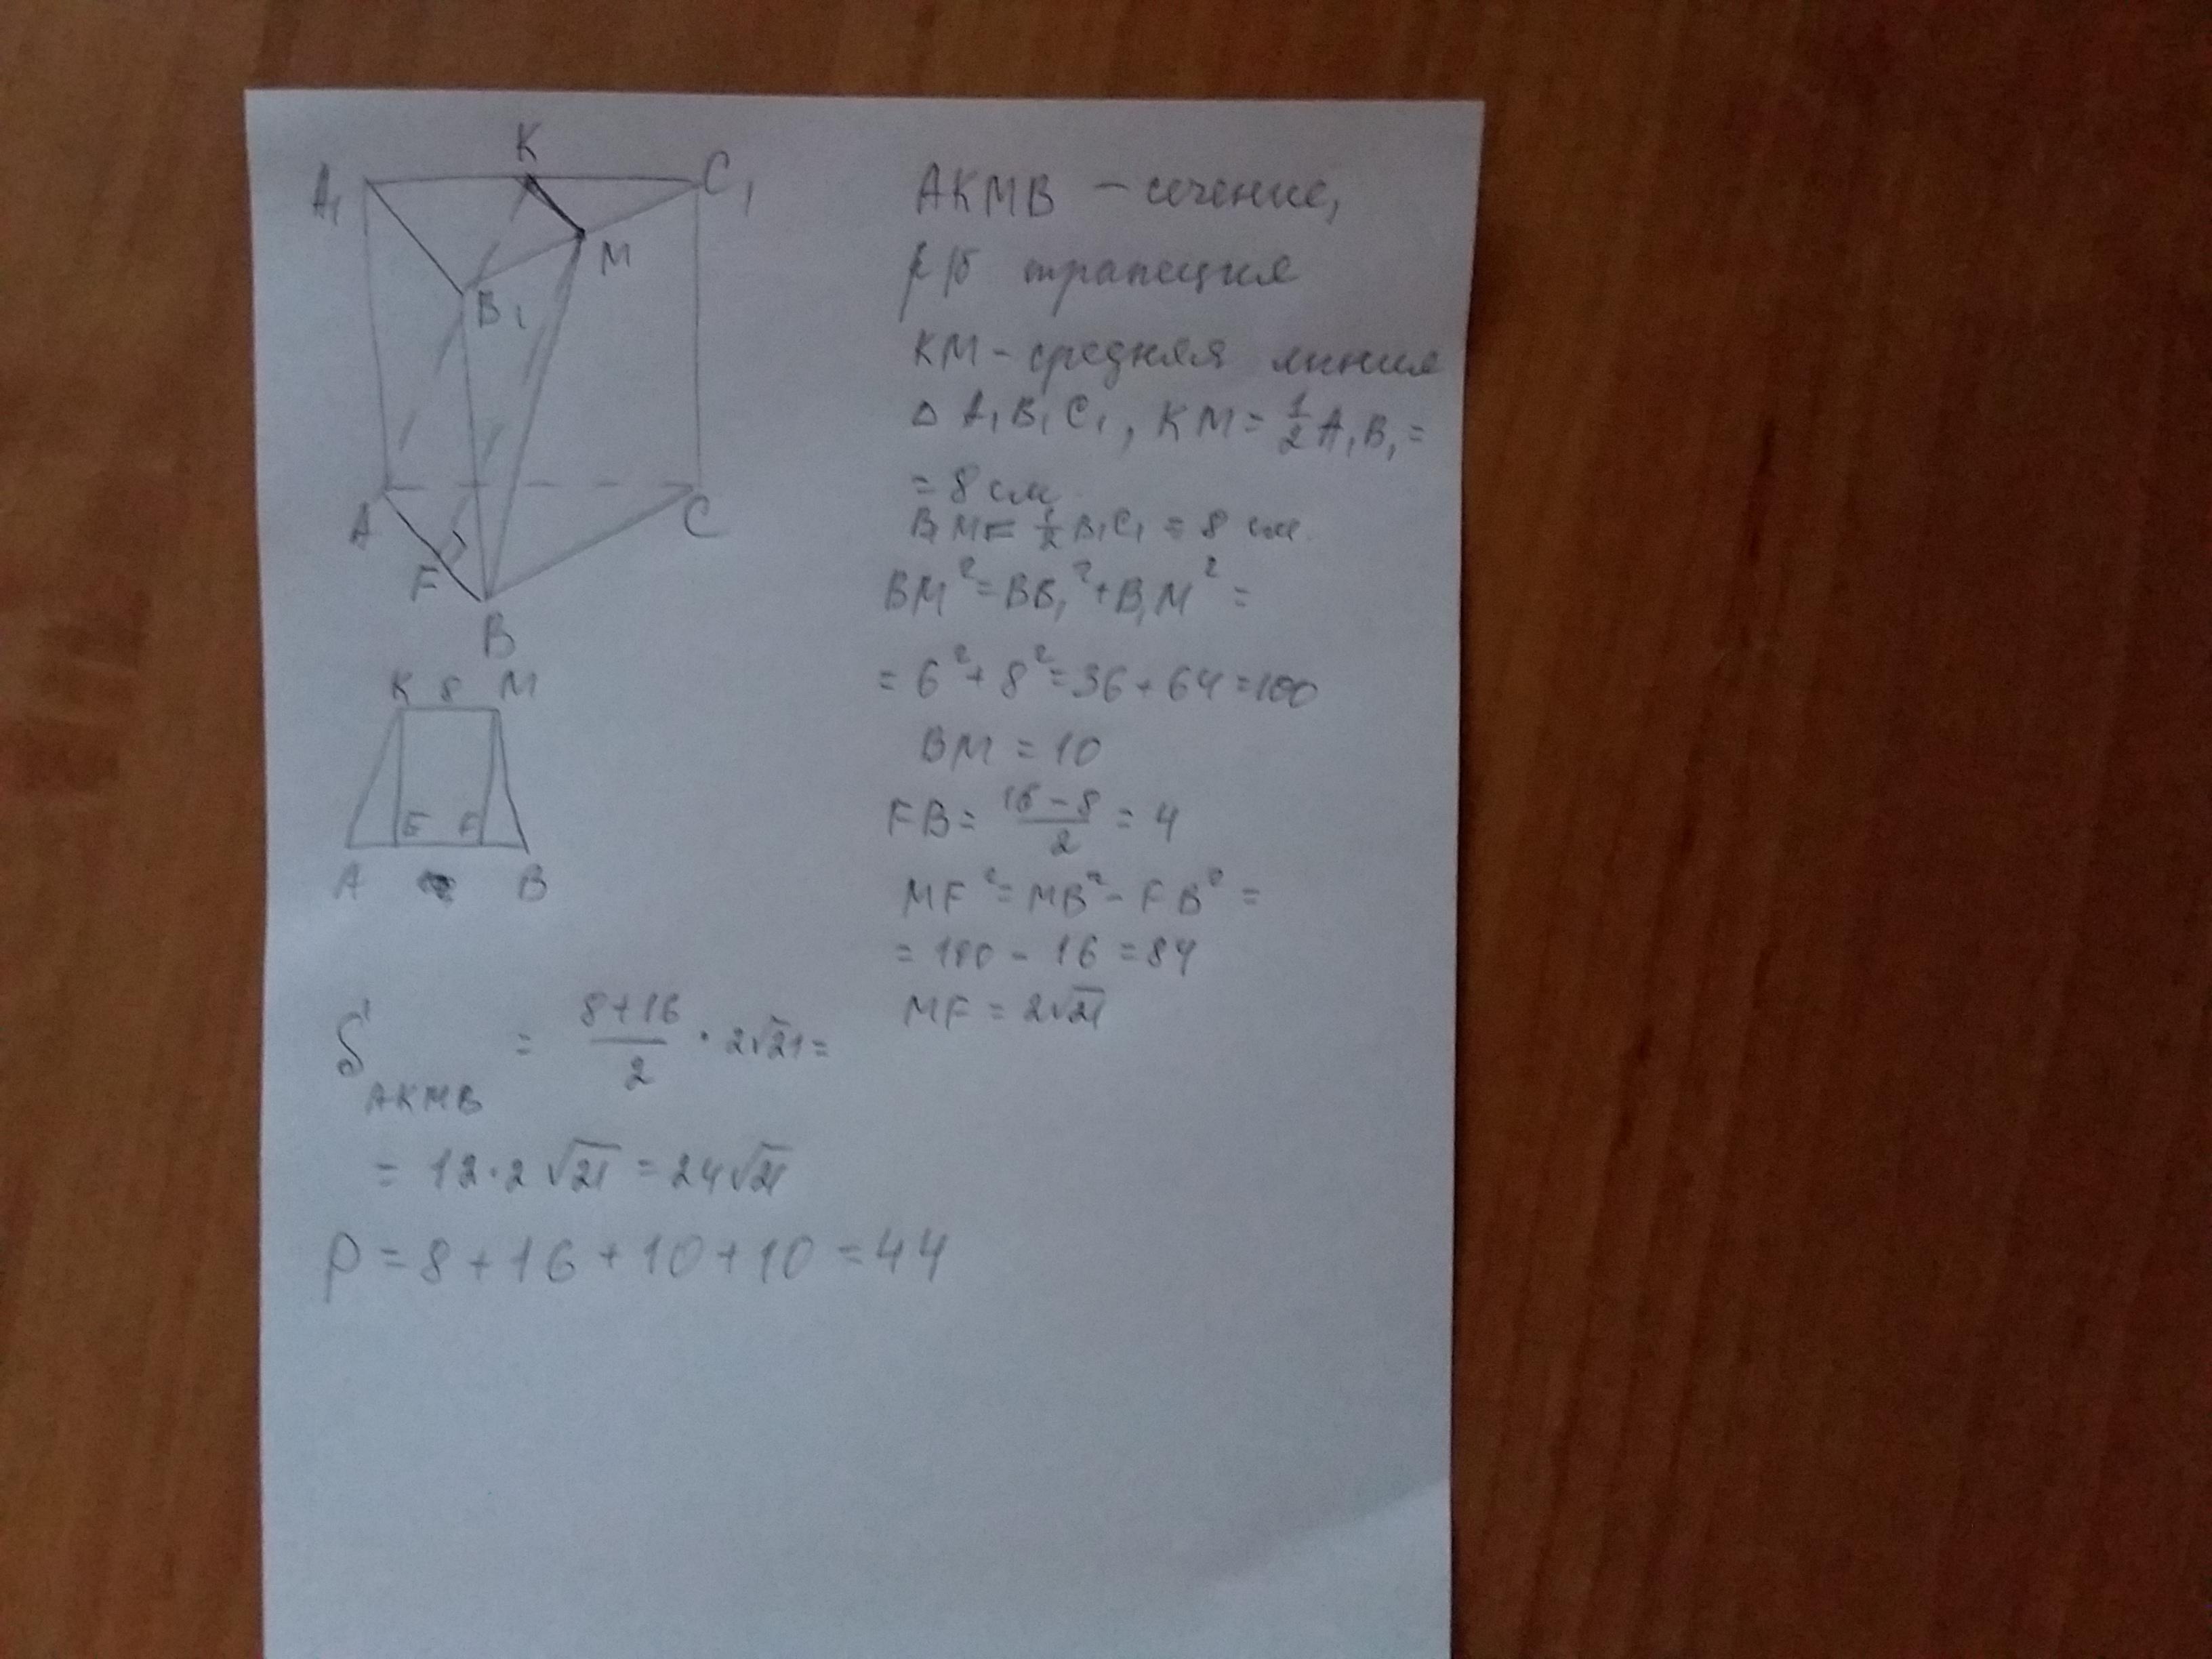 K
A₁
C₁
M
B₁
A
C
F
B
K 8 M
E F
A B
AKMB – сечение,
р/б трапеция
KM – средняя линия
Δ A₁B₁C₁, KM = 1/2 A₁B₁ =
= 8 см
B₁M = 1/2 B₁C₁ = 8 см.
BM² = BB₁² + B₁M² =
= 6² + 8² = 36 + 64 = 100
BM = 10
FB = (16 – 8)/2 = 4
MF² = MB² – FB² =
= 100 – 16 = 84
MF = 2√21
S AKMB = (8+16)/2 · 2√21 =
= 12·2√21 = 24√21
P = 8 + 16 + 10 + 10 = 44